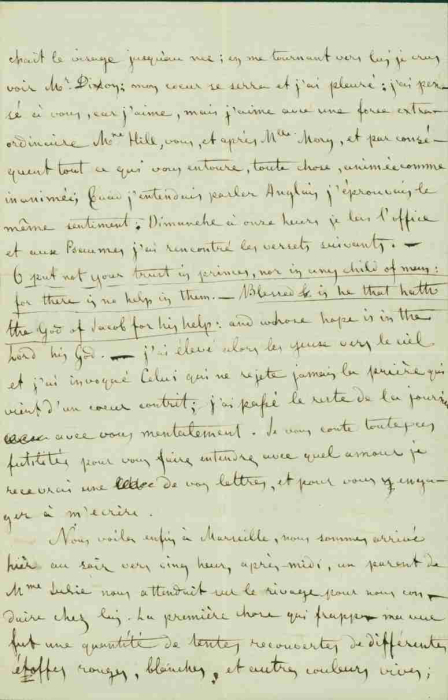 chait le visage jusqu'au nez; en me tournant vers lui je crus
voir Mr Dixon; mon coeur se serra et j'ai pleuré; j'ai pen
sé à vous, car j'aime, mais j'aime avec une force extra-
ordinaire Mme Hill, vous, et après Mlle Mary, et par consé-
quent tout ce qui vous entoure, toute chose, animée comme
inanimée; Quand j'entendais parler Anglais j'éprouvais le
même sentiment. Dimanche à onze heures je lus l'office
et aux Pseaumes j'ai rencontré les versets suivants. —
O put not your trust in princes, nor in any child of man:
for there is no help in them. — Blessed is he that hath
the God of Jacob for his help: and whose hope is in the
Lord his God. — j'ai élevé alors les yeux vers le ciel
et j'ai invoqué Celui qui ne rejete jamais la prière qui
vient d'un coeur contrit; j'ai passé le reste de la journée
avec vous mentalement. Je vous conte toutes ces
futilités pour vous faire entendre avec quel amour je
recevrai une de vos lettres, et pour vous y enga-
ger à m'écrire.
Nous voilà enfin à Marseille, nous sommes arrivé
hièr au soir vers cinq heurs après-midi, un parent de
Mme Julie nous attendait sur le rivage pour nous con
duire chez lui. La première chose qui frappa ma vue
fut une quantité de tentes recouvertes de différentes
étoffes rouges, blanches, et autres couleurs vives;